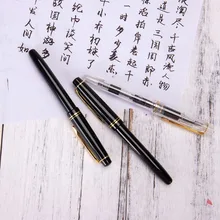 淘尽 千古风流人物
道是 三国周郎赤
岸 卷起千
一时多少豪杰
小乔初嫁了
巾 谈笑间
国神游 多